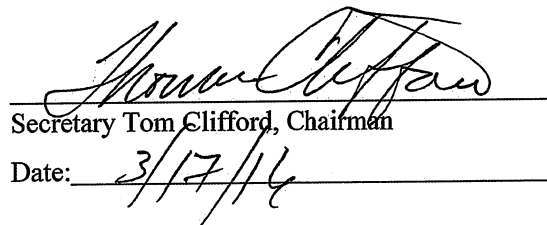 Thomas Clifford
Secretary Tom Clifford, Chairman
Date: 3/17/16